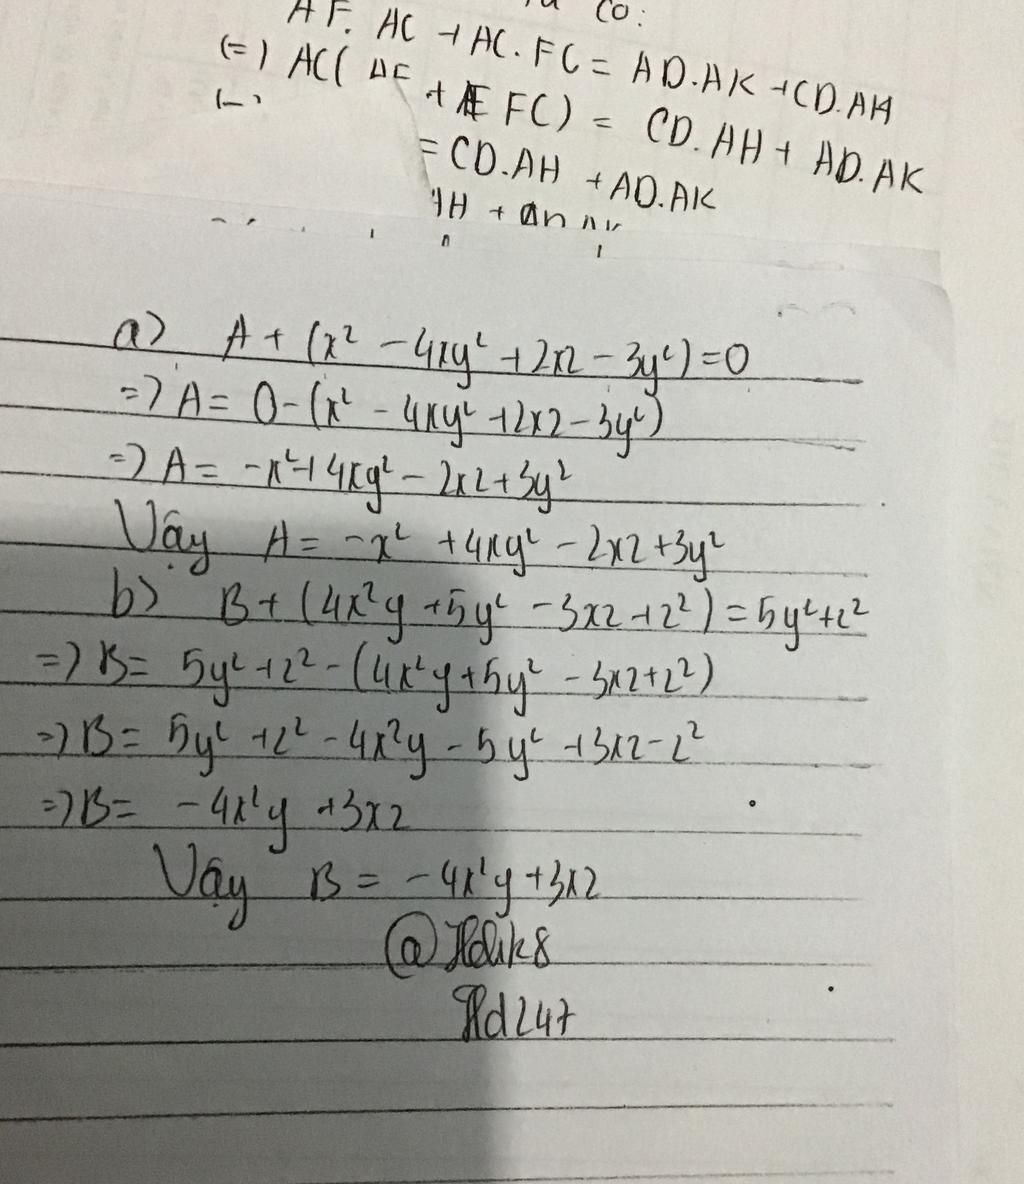 CO:
AF. AC + AC. FC = AD.AK + CD.AH
(=) AC( AF + FC) = CD. AH + AD. AK
= CD.AH + AD.AK
a) A + (x² - 4xy² + 2xz - 3y²) = 0
=> A = 0 - (x² - 4xy² + 2xz - 3y²)
=> A = -x² + 4xy² - 2xz + 3y²
Vậy A = -x² + 4xy² - 2xz + 3y²
b) B + (4x²y + 5y² - 3xz + z²) = 5y² + z²
=> B = 5y² + z² - (4x²y + 5y² - 3xz + z²)
=> B = 5y² + z² - 4x²y - 5y² + 3xz - z²
=> B = -4x²y + 3xz
Vậy B = -4x²y + 3xz